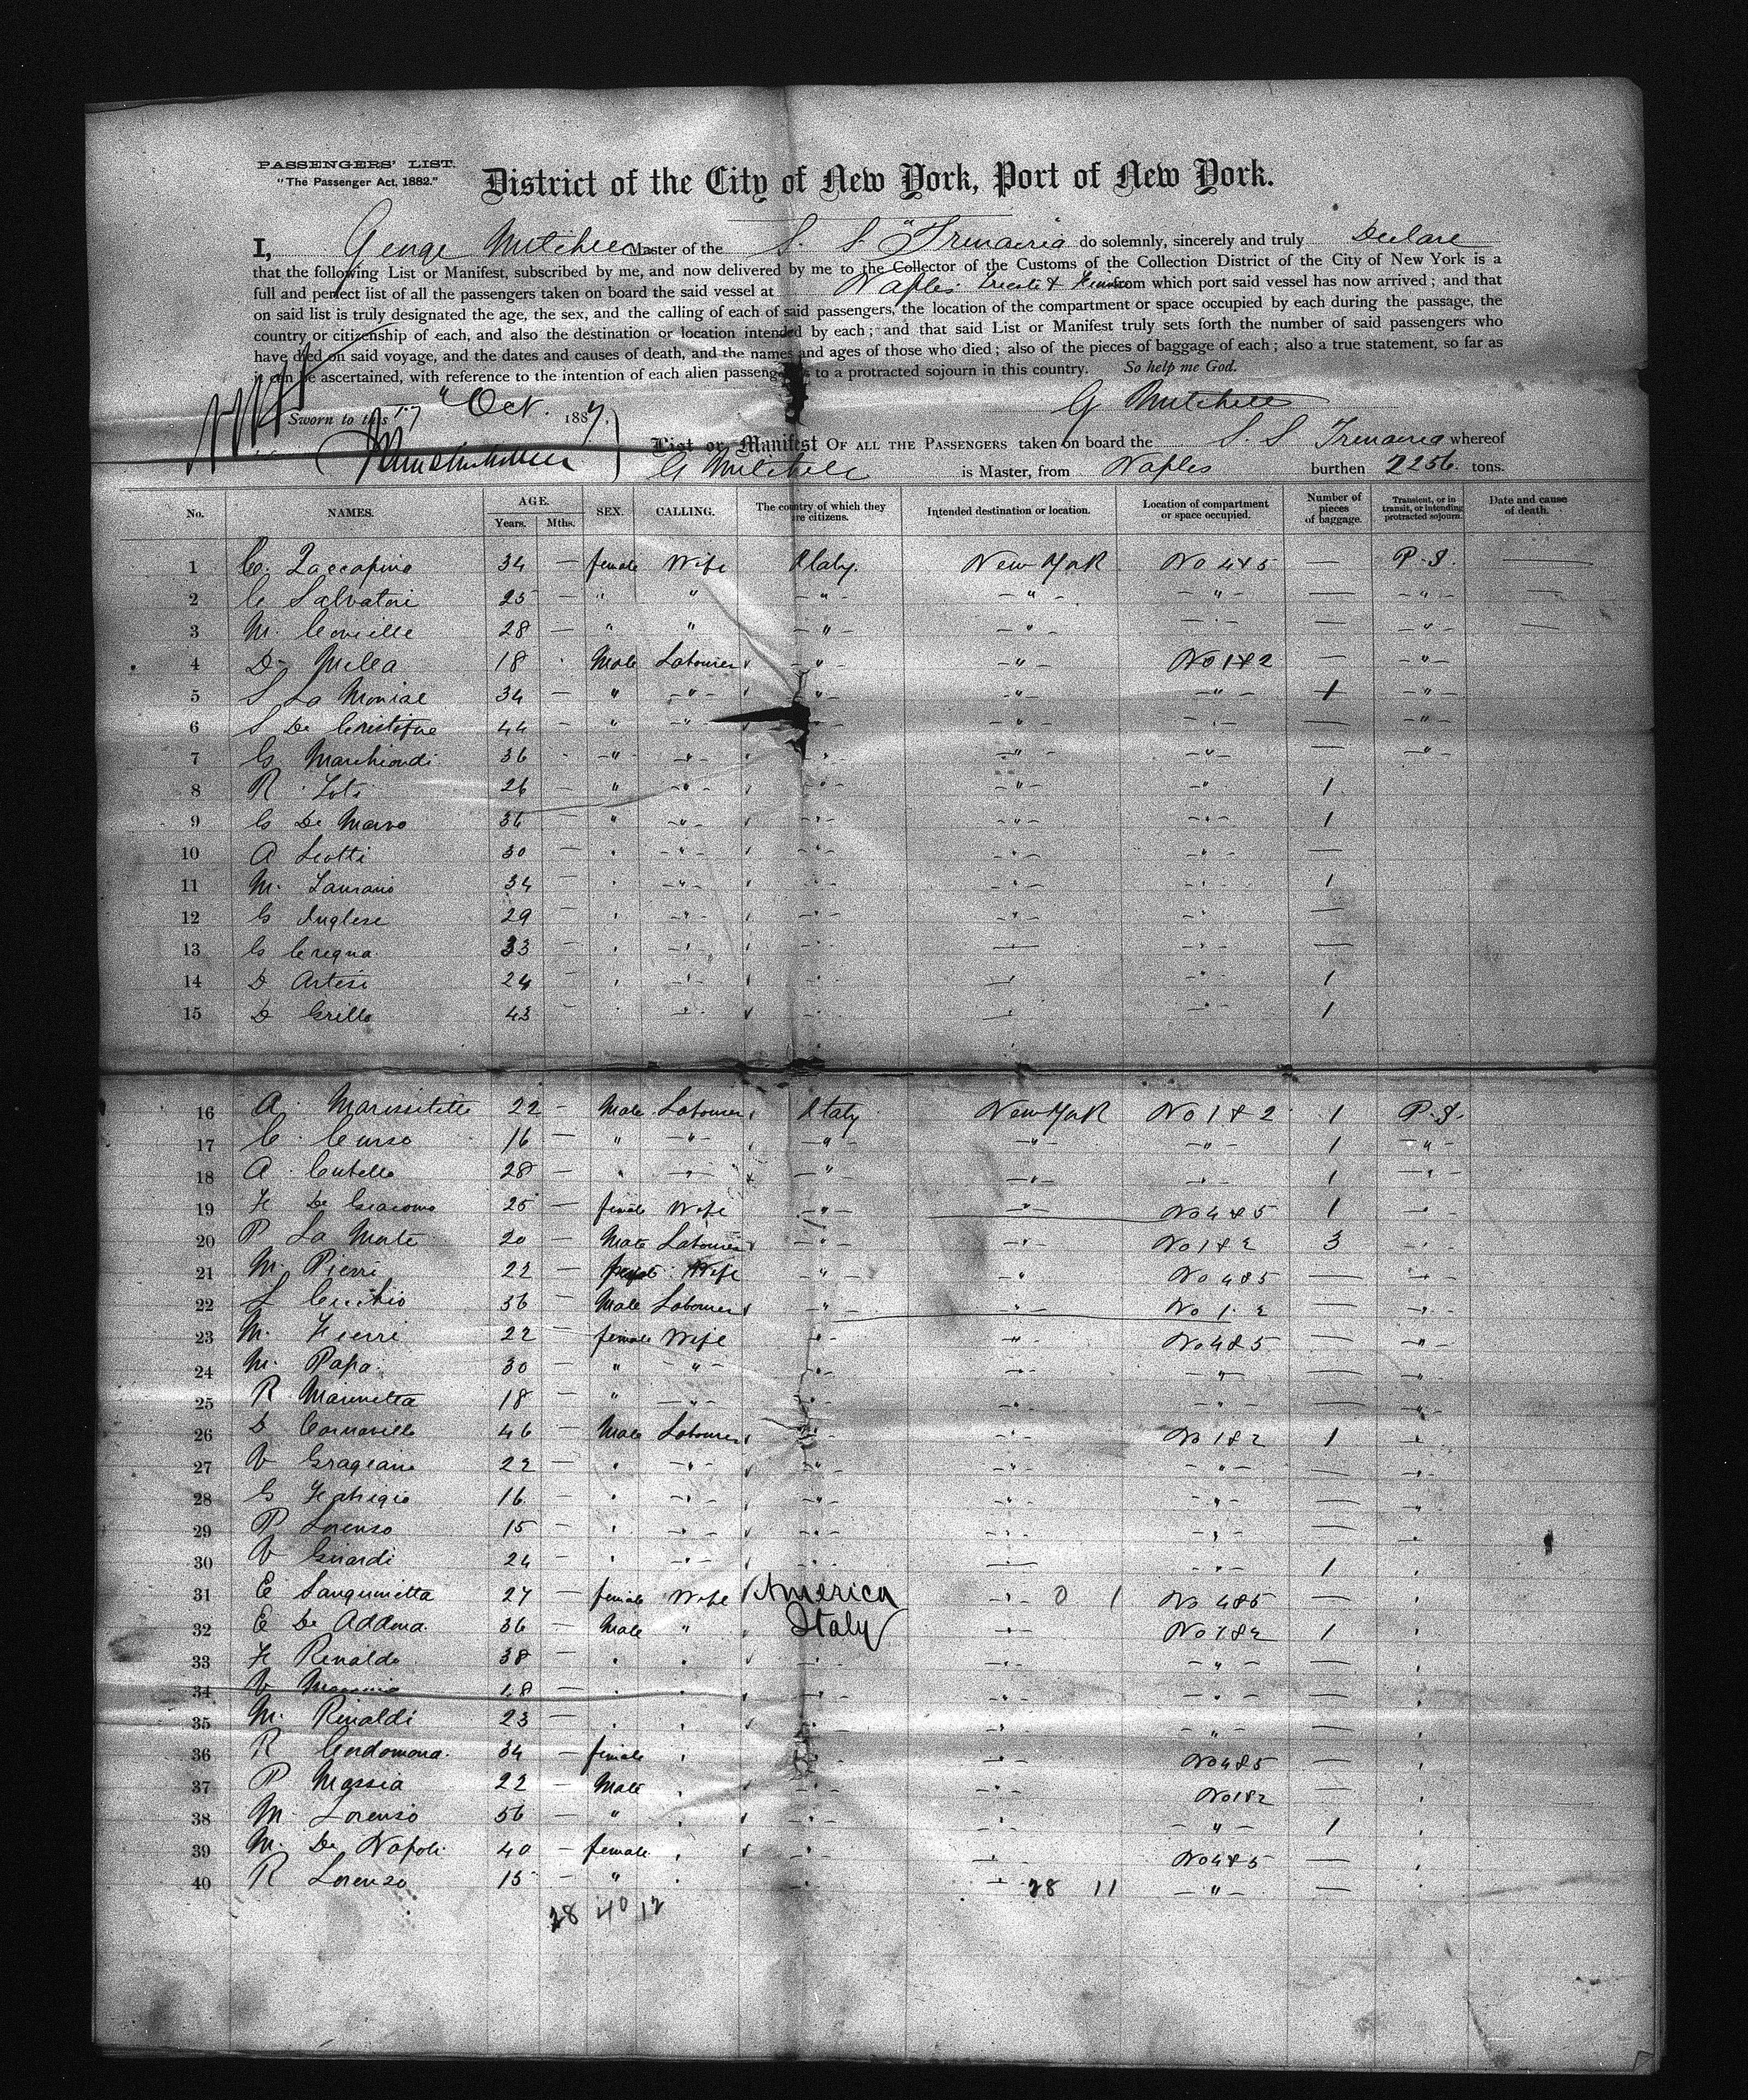 PASSENGERS' LIST.
"The Passenger Act, 1882."
District of the City of New York, Port of New York.
I, George Mitchell Master of the S. S "Trinacria do solemnly, sincerely and truly Declare
that the following List or Manifest, subscribed by me, and now delivered by me to the Collector of the Customs of the Collection District of the City of New York is a
full and perfect list of all the passengers taken on board the said vessel at Naples Trieste & from which port said vessel has now arrived; and that
on said list is truly designated the age, the sex, and the calling of each of said passengers, the location of the compartment or space occupied by each during the passage, the
country or citizenship of each, and also the destination or location intended by each; and that said List or Manifest truly sets forth the number of said passengers who
have died on said voyage, and the dates and causes of death, and the names and ages of those who died; also of the pieces of baggage of each; also a true statement, so far as
it can be ascertained, with reference to the intention of each alien passenger as to a protracted sojourn in this country. So help me God.
Sworn to this 17 " Oct. 1887. G Mitchell
List or Manifest OF ALL THE PASSENGERS taken on board the S. S Trinacria whereof
G Mitchell is Master, from Naples burthen 2256. tons.
No. NAMES. AGE. Years. Mths. SEX. CALLING. The country of which they are citizens. Intended destination or location. Location of compartment or space occupied. Number of pieces of baggage. Transient, or in transit, or intending protracted sojourn. Date and cause of death.
1 C. Zaccapino 34 — female Wife Italy. New York No 4 & 5 — P. S. —
2 C Salvatori 25 — " " — " — — " — — " — — — " — —
3 M. 28 — " " — " — — " — — " — — — " — —
4 D. Milea 18 Male Labourer — " — — " — No 1 & 2 — — " —
5 S La Moniac 34 — " — " — — " — — " — — " — 1 — " —
6 S De Cristofne 44 — " — " — — " — — " — — " — — — " —
7 G Marchiondi 36 - — " — — " — — " — — " — — " — — — " —
8 R Loti 26 — " — " — — " — — " — — " 1
9 G De Marvo 36 — " — " — — " — — " — — " — 1
10 A Leotti 30 — " — " — — " — — " — — " — —
11 M. Laurano 34 — " — " — — " — — " — — " — 1
12 G Inglese 29 — " — " — — " — — " — — " — —
13 G Cregna 33 — " — " — — " — — — " — —
14 D Artesi 24 — " — " — — " — — — " — 1
15 D Grillo 43 — " — " — — " — — — " — 1
16 A. Marissitette 22 — Male Labourer Italy New York No 1 & 2 1 P. S.
17 C. Curso 16 — " — " — — " — — " — — " — 1 — " —
18 A. Cutello 28 — " — " — — " — — " — — " — 1 — " —
19 F De Giacomo 25 — female Wife — " — — " — No 4 & 5 1 — " —
20 P La Mate 20 — Male Labourer — " — — " — No 1 & 2 3 — " —
21 M. Pierri 22 — Wife — " — — " — No 4 & 5 — — " —
22 36 — Male Labourer — " — — " — No 1. 2 — — " —
23 M. Fierri 22 — female Wife — " — — " — No 4 & 5 — — " —
24 M. Papa 30 — " — " — — " — — " — — " — — — " —
25 R. Marinetta 18 — " — " — — " — — " — — " — — — " —
26 D Carnavillo 46 — Male Labourer — " — — " — No 1 & 2 1 — " —
27 V Grageane 22 — " — " — — " — — " — — " — — — " —
28 G 16 — " — " — — " — — " — — " — — "
29 P Lorenso 15 — " — " — — " — — " — — " — — "
30 V Girardi 24 — " — " — — " — — — " — 1 "
31 E Sanguinetta 27 — female Wife America — " — 0 1 No 4 & 5 — "
32 E De Addona 36 — Male " Italy — " — No 1 & 2 1 "
33 F Rinaldo 38 — " " — " — — " — — " — — "
34 V 18 — " " — " — — " — — " — — "
35 M. Rinaldi 23 — " " — " — — " — — " — — "
36 R Cordomona. 34 — female " — " — — " — No 4 & 5 — "
37 P Massia 22 — Male " — " — — " — No 1 & 2 — "
38 M. Lorenso 56 — " " — " — — " — — " — 1 "
39 M. De Napoli 40 — female " — " — — " — No 4 & 5 — "
40 R Lorenzo 15 — " " — " — — " 28 11 — " — — "
28 40 12